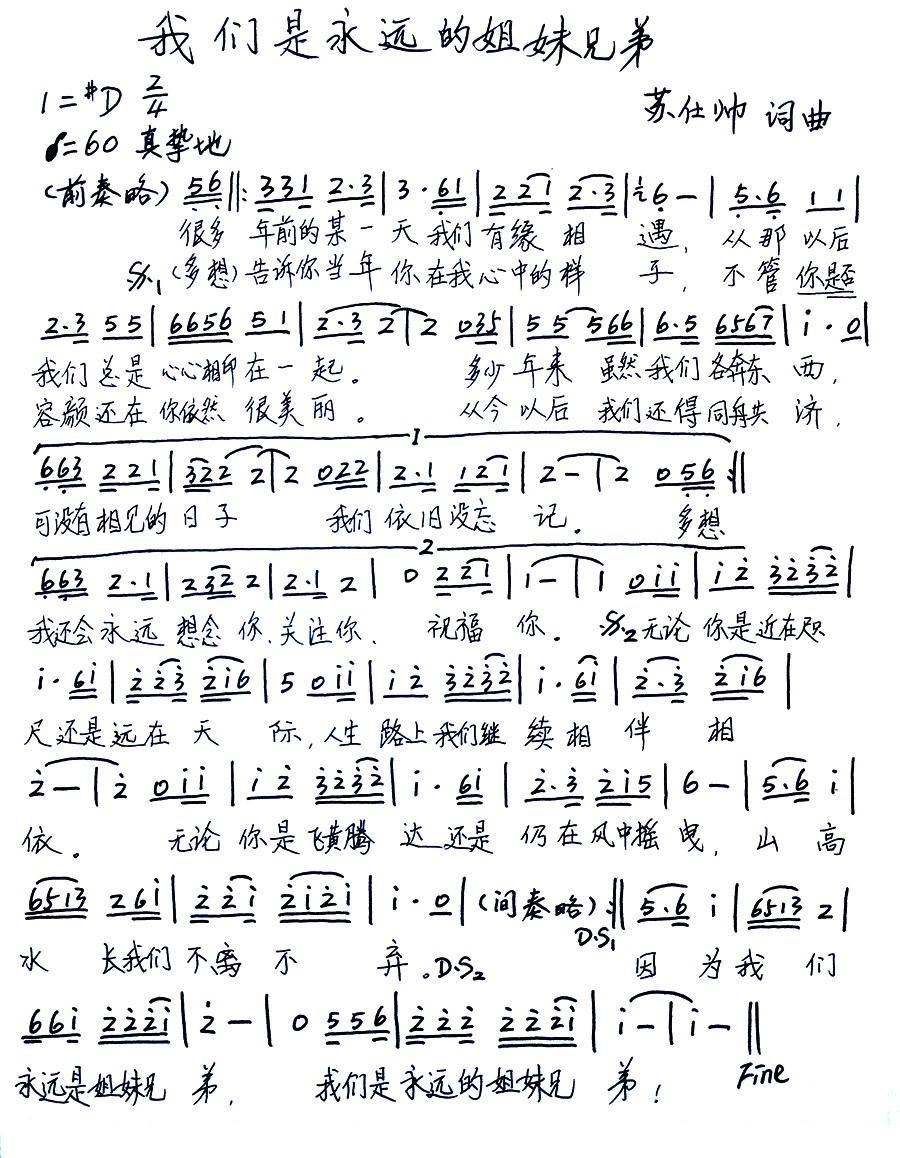 我们是永远的姐妹兄弟
1=#D 2/4
苏仕帅 词曲
♩=60 真挚地
(前奏略) 56‖: 331 2·3 | 3·61 | 221 2·3 | 16 - | 5·6 11 |
很多 年前的某一天我们有缘相遇，从那以后
𝄋1 (多想)告诉你当年你在我心中的样子，不管你是否
2·3 55 | 6656 51 | 2·3 2 | 2 035 | 55 566 | 6·5 6567 | i·0 |
我们总是心心相印在一起。 多少年来 虽然我们各奔东西，
容颜还在 你依然 很美丽。 从今以后 我们还得同舟共济，
1
663 221 | 322 2 | 2 022 | 2·1 121 | 2 - | 2 056 :‖
可没有相见的日子 我们依旧没忘记。 多想
2
663 2·1 | 232 2 | 2·1 2 | 0 221 | i - | i 0ii | i2 3232 |
我还会永远想念你、关注你、祝福你。 𝄋2 无论你是近在咫
i·6i | 223 2i6 | 5 0ii | i2 3232 | i·6i | 2·3 2i6 |
尺还是远在天际，人生路上我们继续相伴相
2 - | 2 0ii | i2 3232 | i·6i | 2·3 2i5 | 6 - | 5·6 i |
依。 无论你是飞黄腾达还是仍在风中摇曳，山高
6513 26i | 22i 2i2i | i·0 | (间奏略) :‖ 5·6 i | 6513 2 |
D.S1
水长我们不离不弃。D.S2 因为我们
66i 222i | 2 - | 0 556 | 222 222i | i - | i - ‖
永远是姐妹兄弟， 我们是永远的姐妹兄弟！ Fine